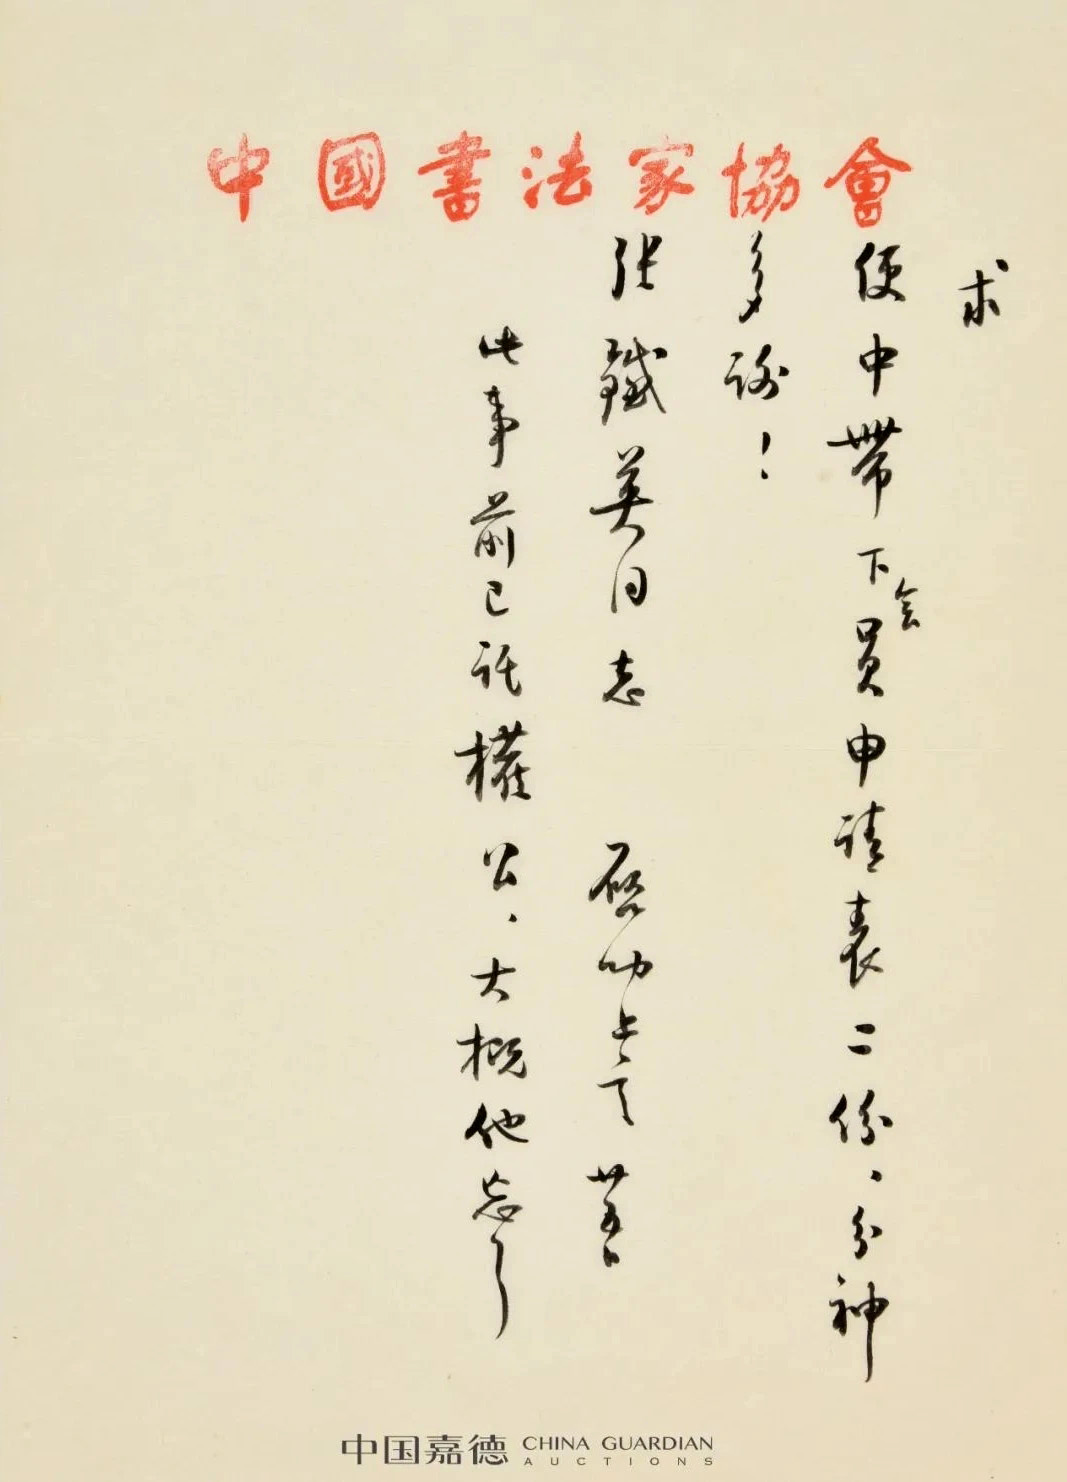 中國書法家協會
求
便中帶下会員申请表二份、分神
多谢！
张鐵英同志 启功上言 廿五日
此事前已託權公、大概他忘了
中国嘉德 CHINA GUARDIAN
AUCTIONS